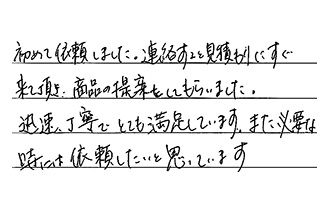 初めて依頼しました。連絡すると見積りにすぐ
来て頂き、商品の提案をしてもらいました。
迅速、丁寧でとても満足しています。また必要な
時には依頼したいと思っています